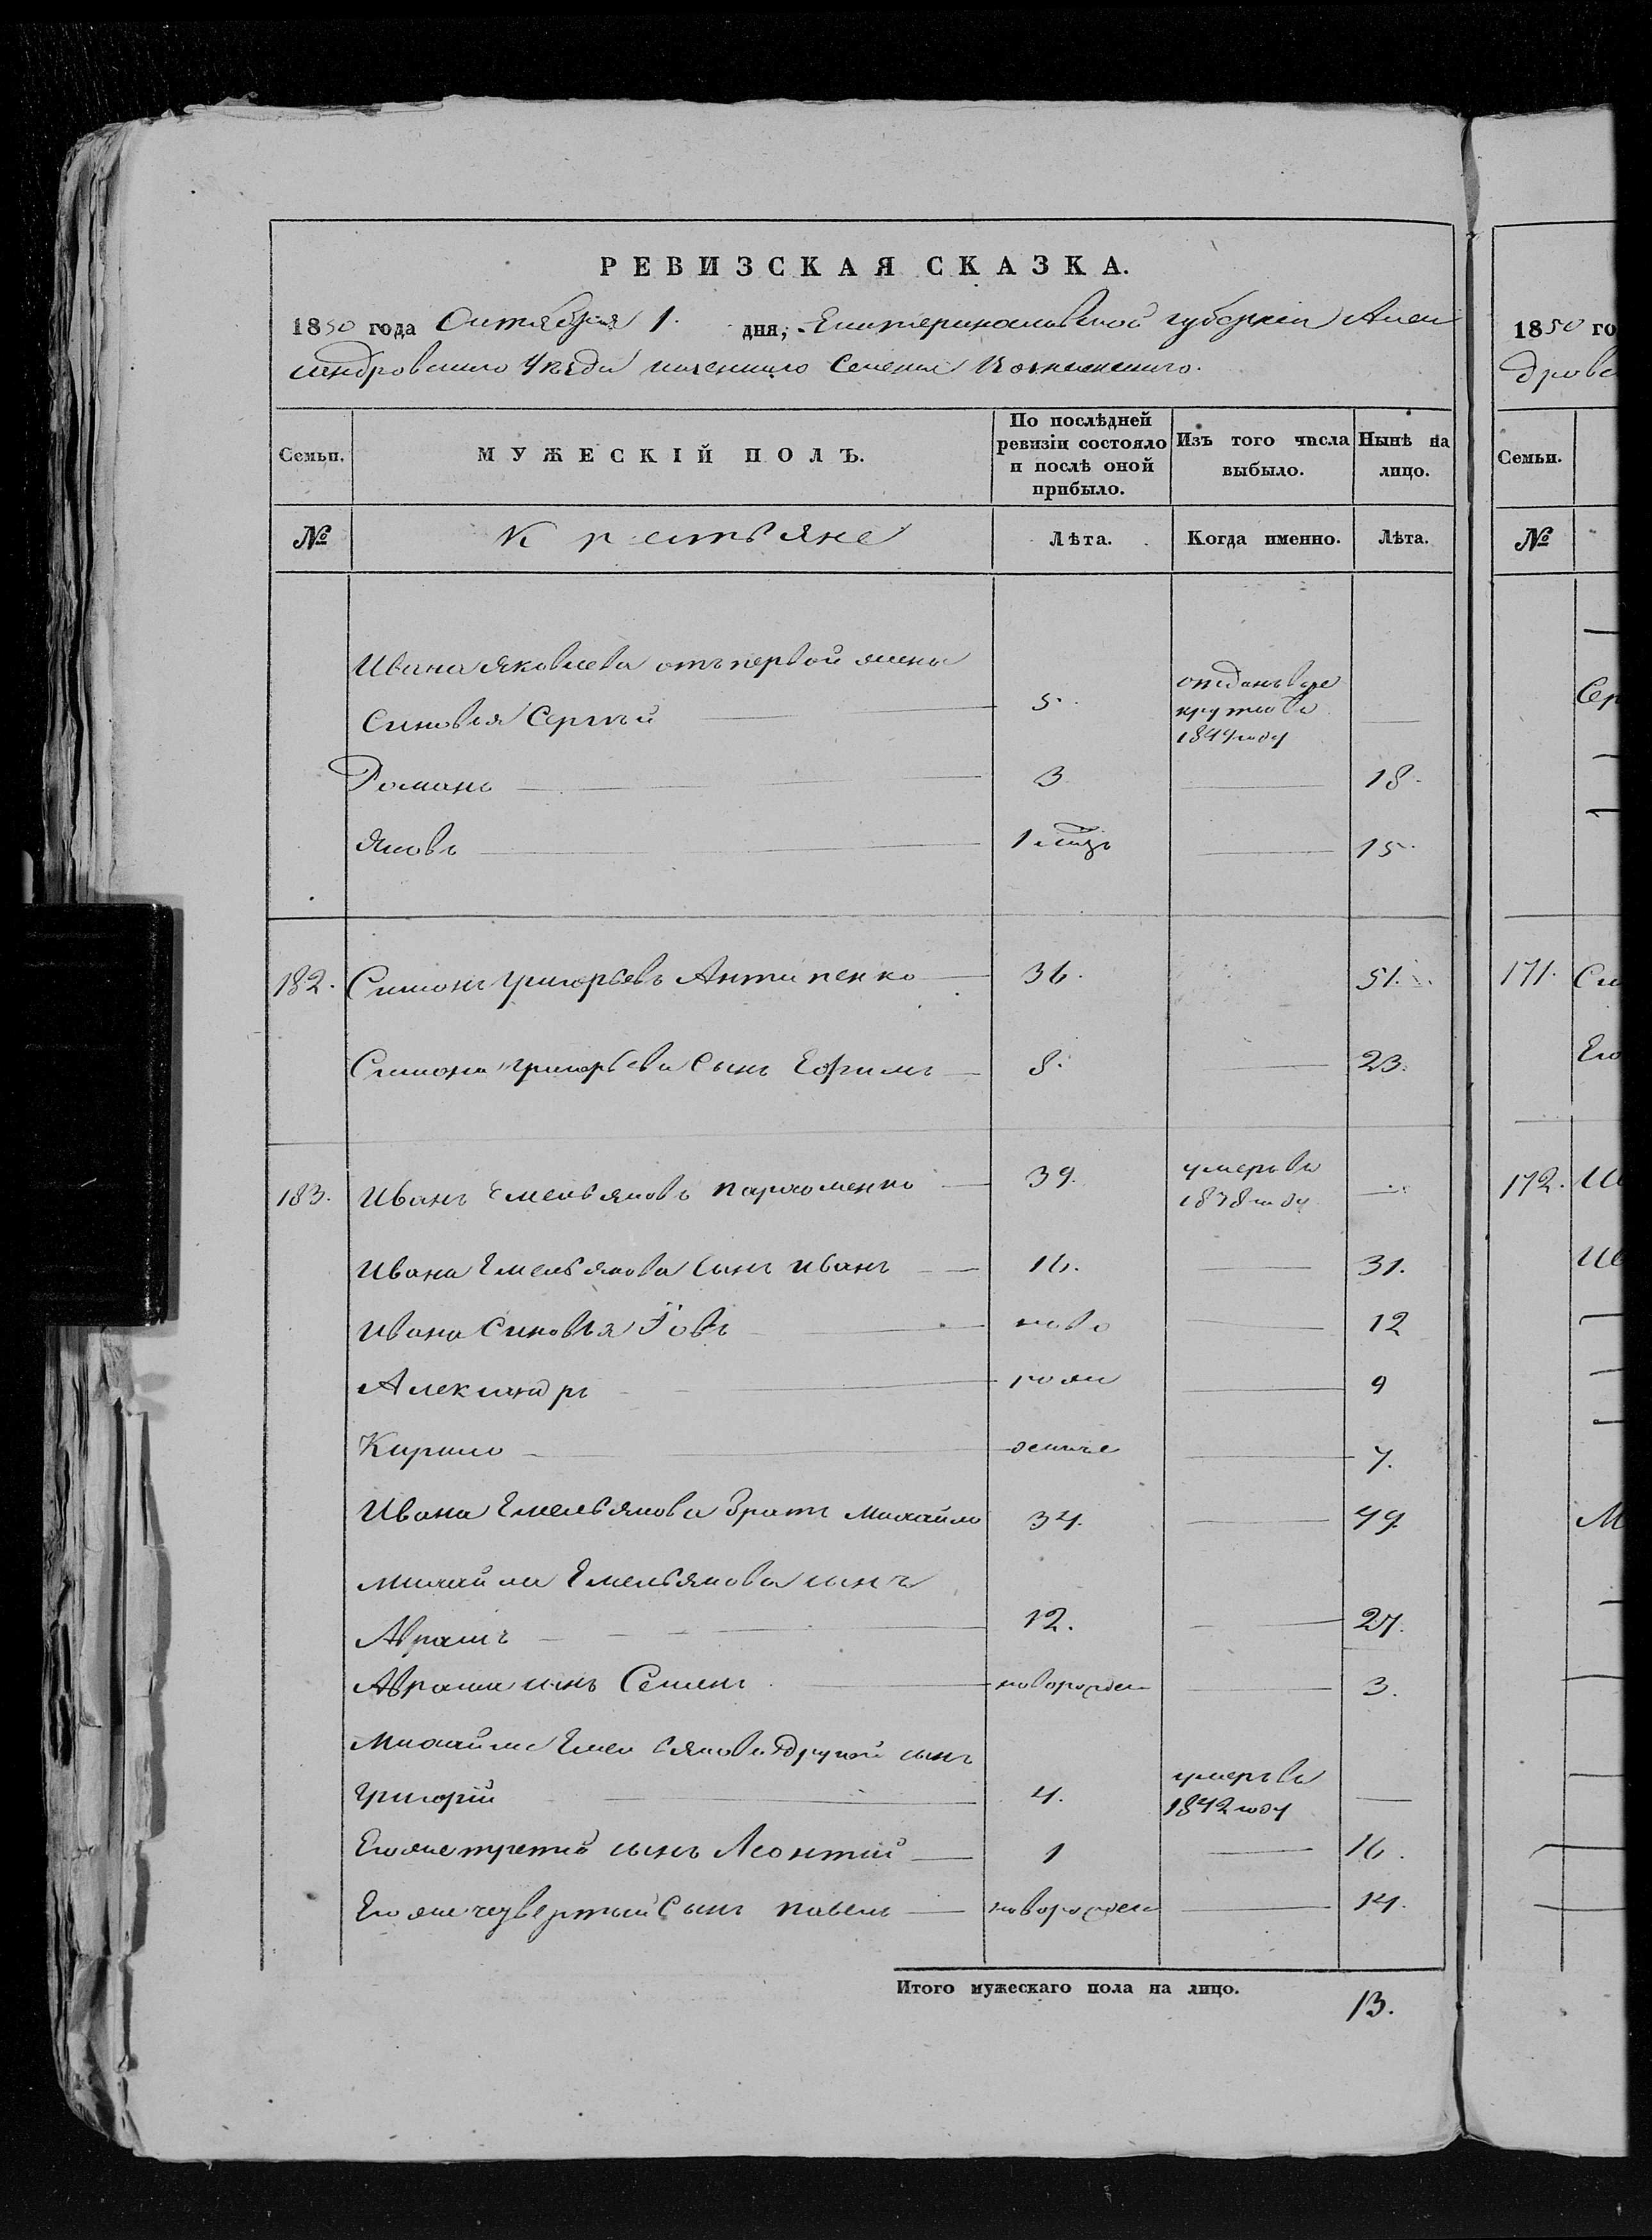 РЕВИЗСКАЯ СКАЗКА.
1850 года Октября 1. дня, Екатеринославской губернии Алек
сандровского Уезда казенного Селения
Семьи.
МУЖЕСКІЙ ПОЛЪ.
По послѣдней ревизіи состояло и послѣ оной прибыло.
Изъ того числа выбыло.
Нынѣ на лицо.
№
Крестьяне
Лѣта.
Когда именно.
Лѣта.
Ивана Яковлева отъ первой жены
Синовья Сергѣй 5. отданъ в ре
крути въ
1844 году
Романъ 3 18.
Яковъ 1 мѣцъ 15.
182. Симонъ Григорьевъ Антипенко 36. 51.
Симона Григорьева Сынъ Ефимъ 8. 23.
183. Иванъ Емельяновъ Пархоменко 39. умеръ въ
1838 году
Ивана Емельянова Сынъ Иванъ 16. 31.
Ивана Синовья Іовъ ново 12
Александръ рож 9
Кирило денные 7.
Ивана Емельянова Братъ Михайло 34. 49.
Михайла Емельянова сынъ
Аврамъ 12. 27.
Аврама сынъ Семенъ новорожден 3.
Михайла Емельянова другой сынъ
Григорій 4. умеръ въ
1842 году
Его же третий сынъ Леонтій 1 16.
Его же четвертый Сынъ Павелъ новорожден 14.
Итого мужескаго пола на лицо.
13.
1850 го
дровс
Семьи.
№
Сер
171. Си
Его
172. Ив
Ив
М